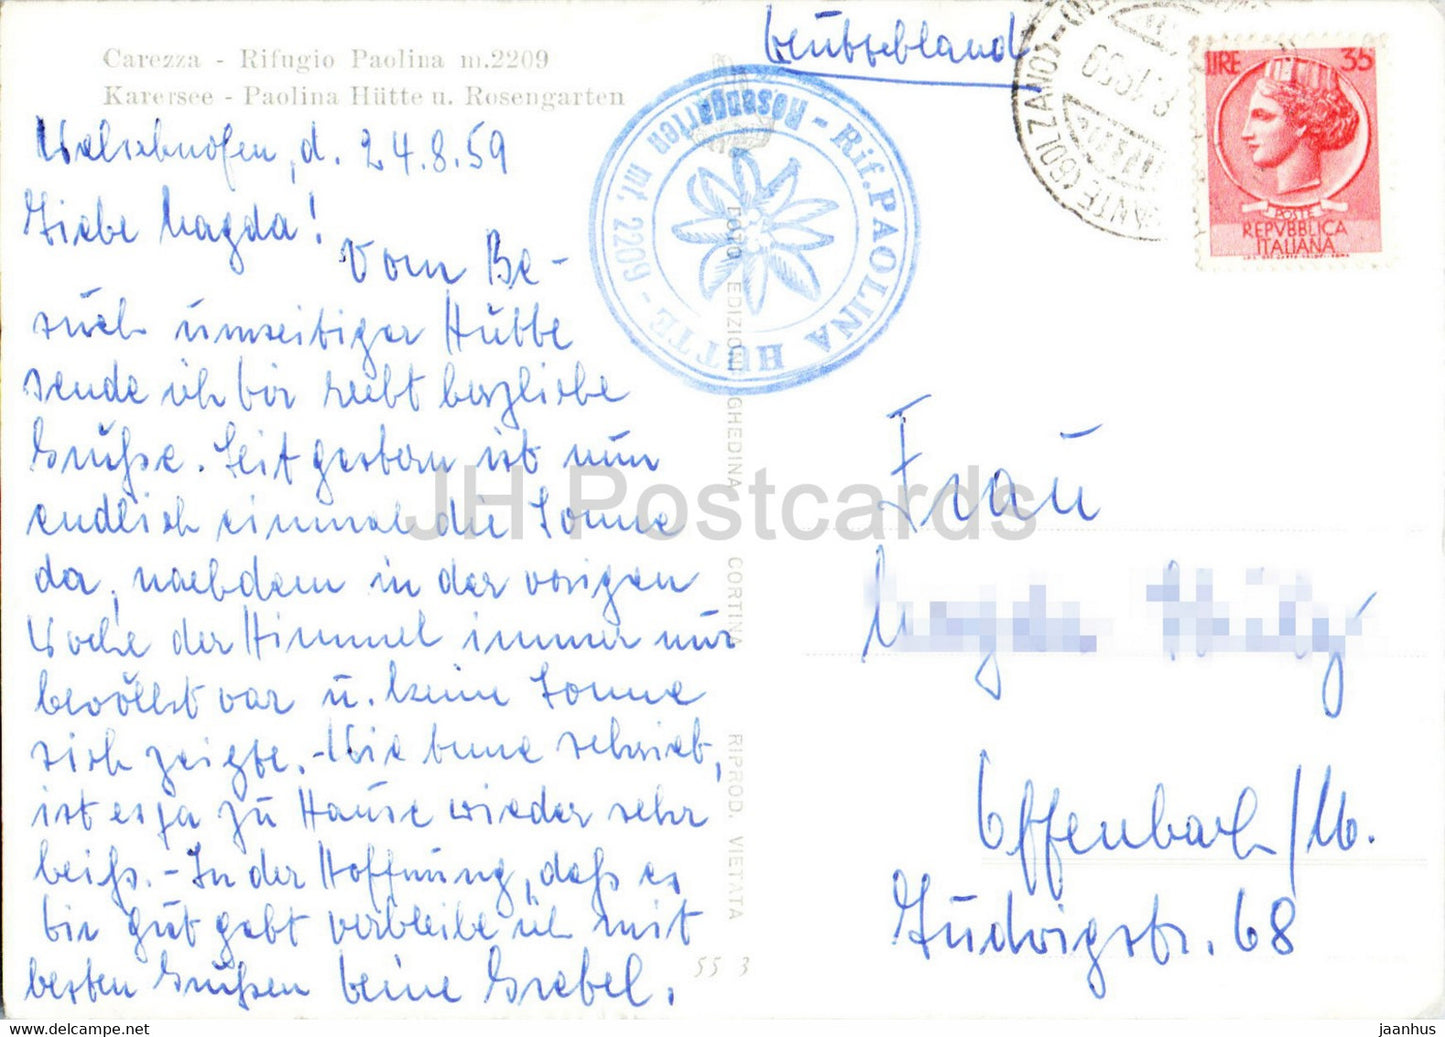 Carezza - Rifugio Paolina m.2209
Karersee - Paolina Hütte u. Rosengarten
Welschnofen, d. 24.8.59
Liebe Magda!
Vom Be-
such umseitiger Hütte
sende ich Dir recht herzliche
Grüße. Seit gestern ist nun
endlich einmal die Sonne
da, nachdem in der vorigen
Woche der Himmel immer nur
bewölkt war u. keine Sonne
sich zeigte. - Wie Du schrieb,
ist es ja zu Hause wieder sehr
heiß. - In der Hoffnung, daß es
Dir gut geht verbleibe ich mit
besten Grüßen Deine Gretel.
55 3
FOTO EDIZIONI GHEDINA CORTINA RIPROD. VIETATA
Rif. PAOLINA HÜTTE - 2209 m. Rosengarten -
Deutschland
(BOLZANO)
LIRE 35
POSTE
REPVBBLICA
ITALIANA
Frau
Offenbach/M.
Ludwigstr. 68
JH Postcards
delcampe.net
jaanhus